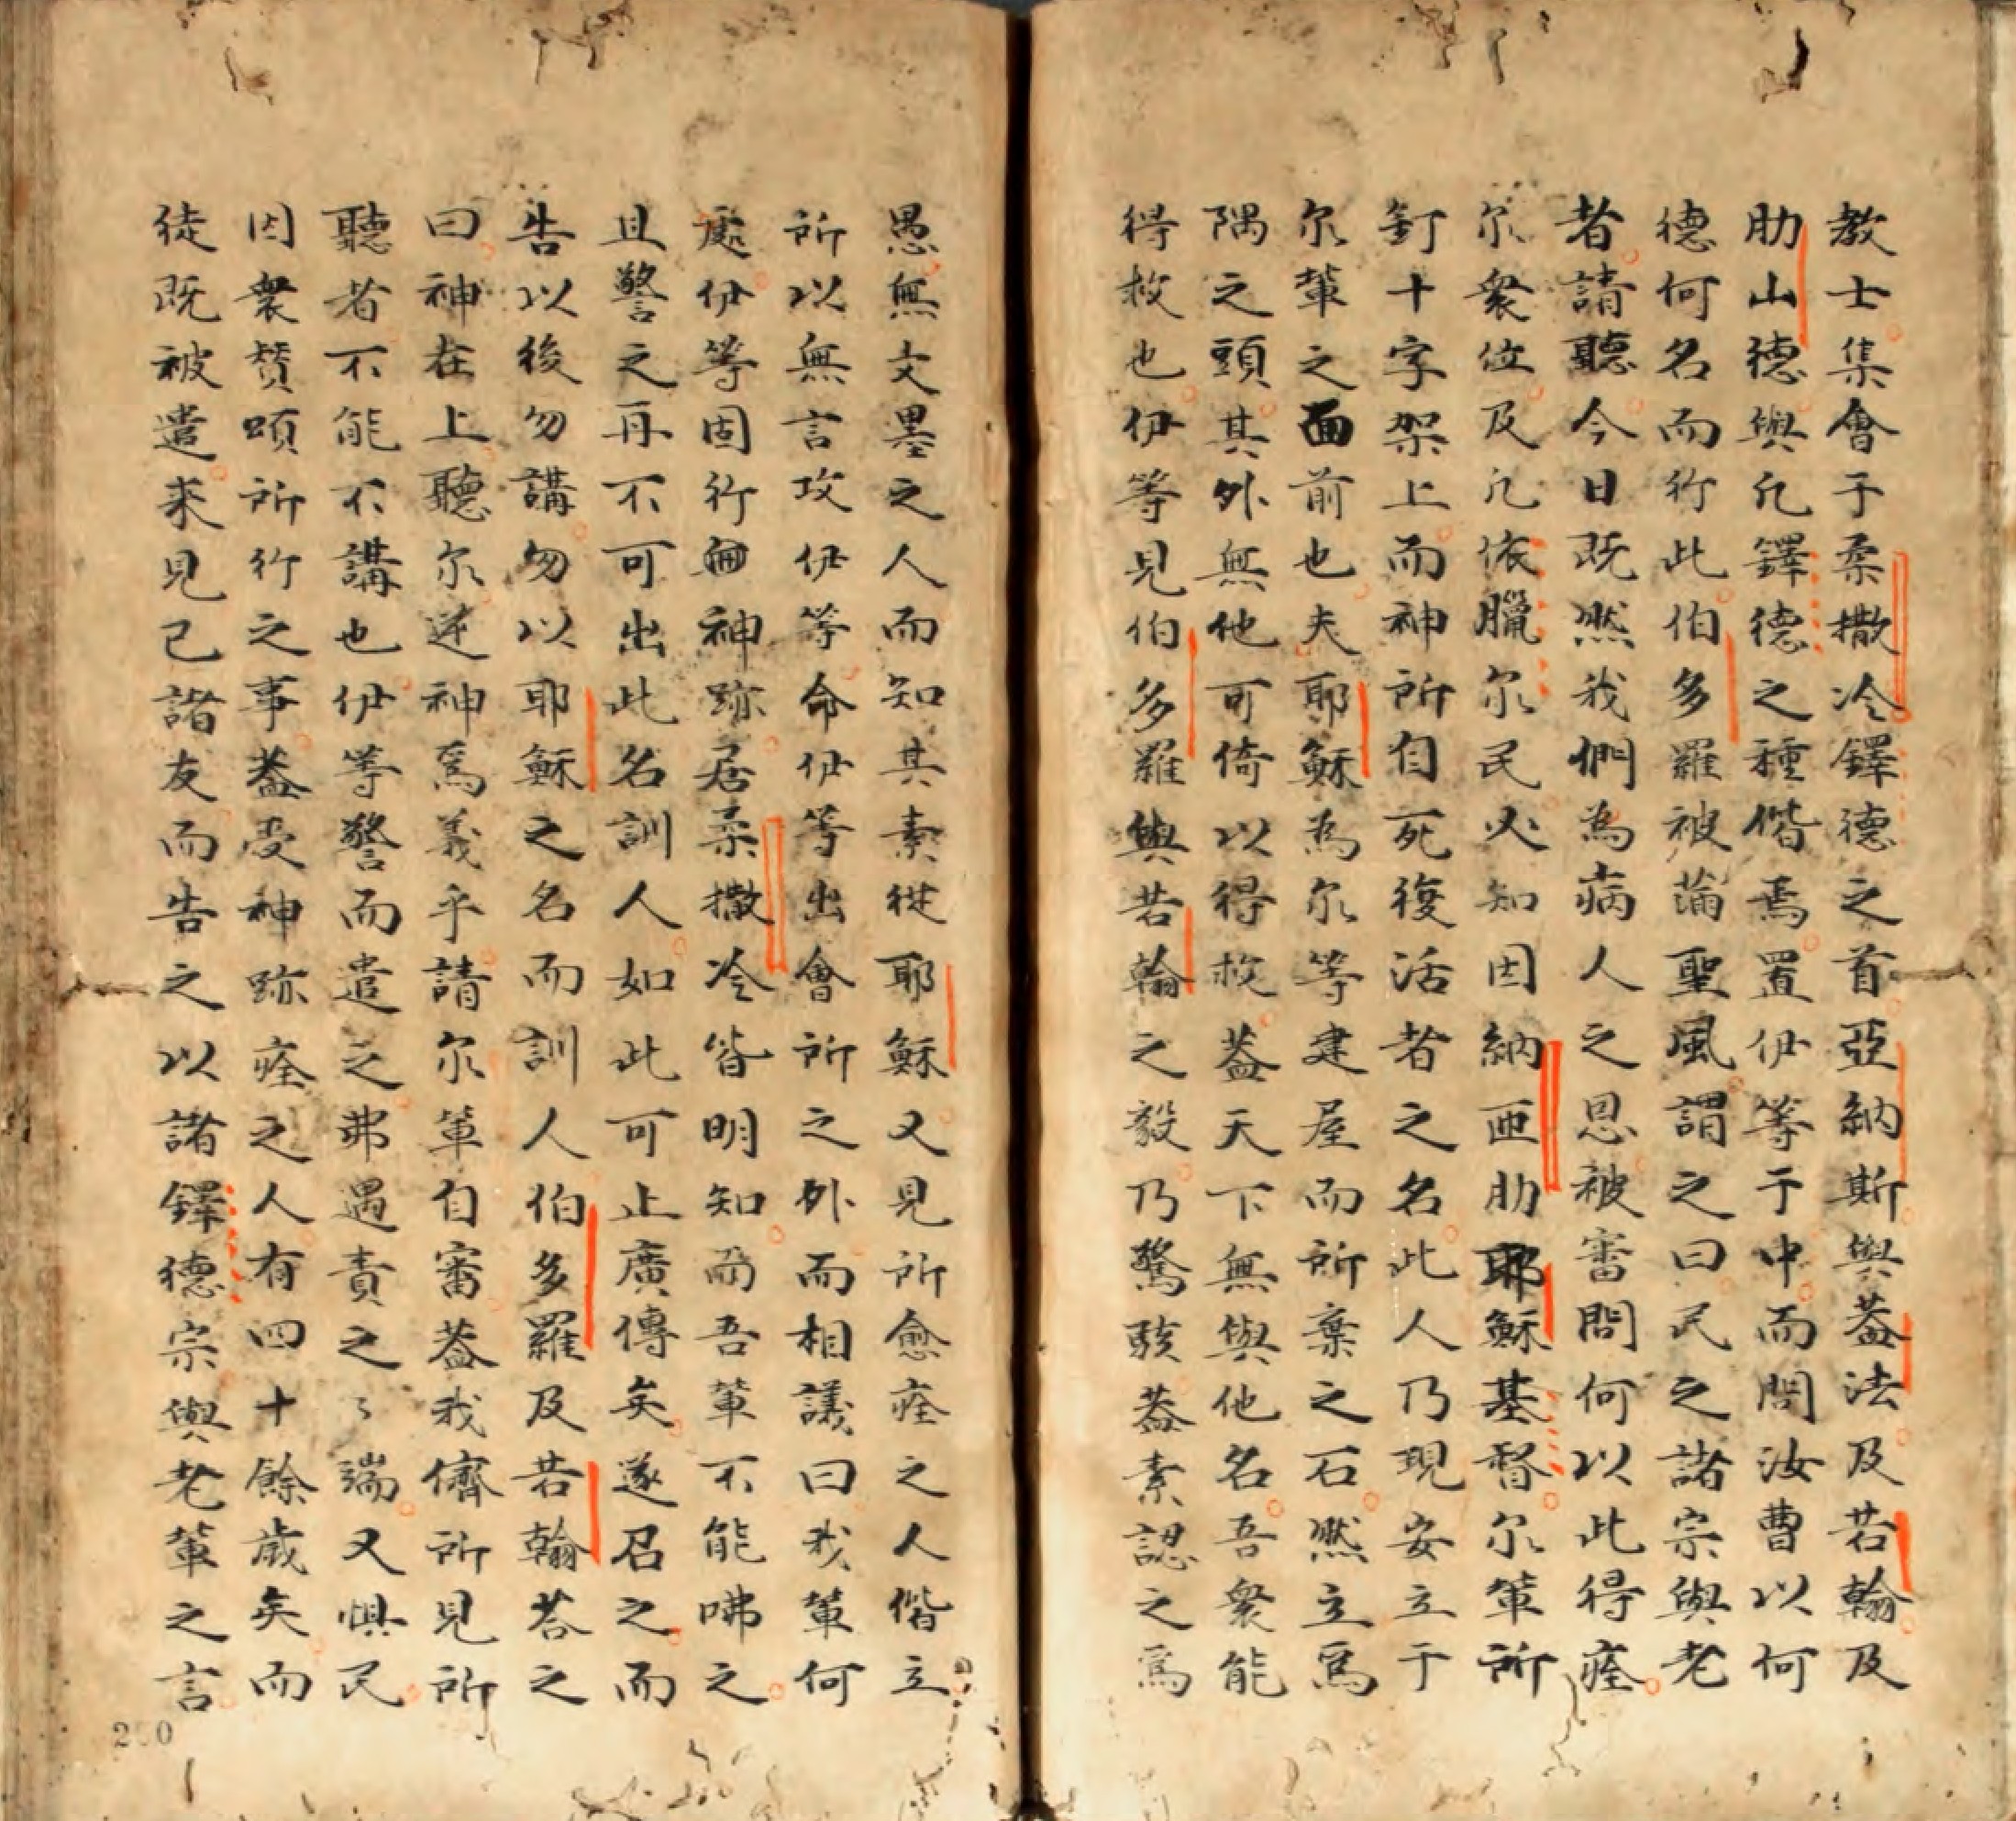 教士集會于柔撒冷鐸德之首亞納斯與蓋法及若翰及
肋山德與凡鐸德之種偕焉置伊等于中而問汝曹以何
德何名而行此伯多羅被蒲聖風謂之曰民之諸宗與老
者請聽今日既然我們為病人之恩被審問何以此得痊
尔衆位及凡依臘尔民必知因納匝肋耶穌基督尔軰所
釘十字架上而神所自死復活者之名此人乃現安立于
尔輩之面前也夫耶穌為尔等建屋而所棄之石然立爲
隅之頭其外無他可倚以得救蓋天下無與他名吾衆能
得救也伊等見伯多羅與若翰之毅乃驚駭蓋素認之爲
愚無文墨之人而知其素從耶穌又見所愈痊之人偕立
所以無言攻伊等命伊等出會所之外而相議曰我輩何
處伊等固行𠕇神跡居柔撒冷皆明知而吾輩不能咈之
且警之再不可出此名訓人如此可止廣傳矣遂召之而
告以後勿講勿以耶穌之名而訓人伯多羅及若翰荅之
曰神在上聽尔逆神爲義乎請尔軰自審蓋我儕所見所
聽者不能不講也伊等警而遣之弗遇責之之端又惧民
因衆賛頌所行之事蓋受神跡痊之人有四十餘歲矣而
徒既被遣來見己諸友而告之以諸鐸德宗與老輩之言